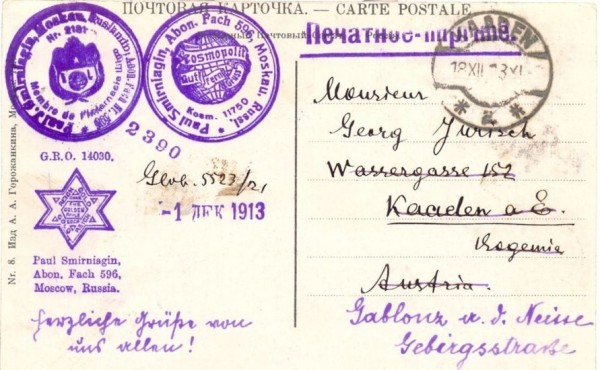 ПОЧТОВАЯ КАРТОЧКА. — CARTE POSTALE.
Paul Smirniagin, Moskau, Russland, Abon. Fach Nr. 596
Nr. 2181
Membro de
Paul Smirniagin, Abon. Fach 596, Moskau, Russl.
Kosmopolit
Gut Fern Gruss
Kosm. 11750
Печатное
KAADEN
18 XII 13
2390
G.B.O. 14030.
Glob. 5523/21
-1 ДЕК 1913
Paul Smirniagin,
Abon. Fach 596,
Moscow, Russia.
herzliche Grüße von
uns allen!
Monsieur
Georg Jurisch
Wassergasse 152
Kaaden a E.
Austria.
Gablonz a. d. Neisse
Gebirgsstraße
Nr. 8. Изд. А. А. Горожанкина, Мо